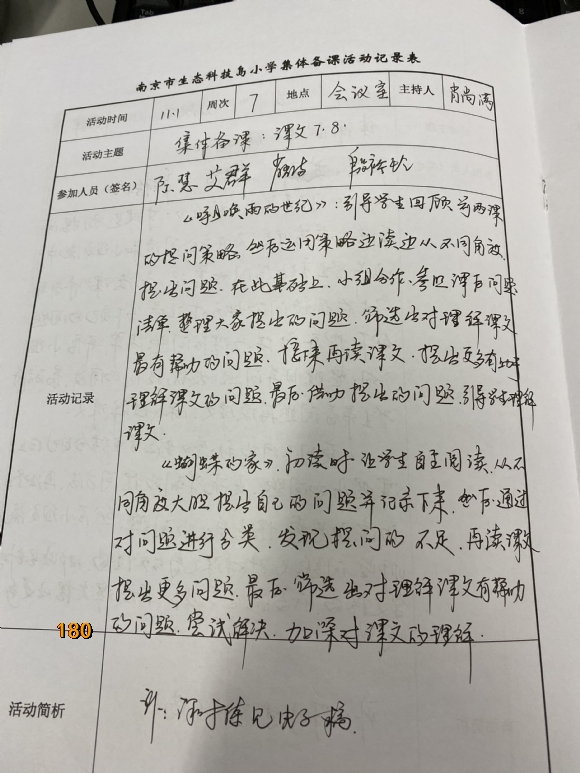 南京市生态科技岛小学集体备课活动记录表
活动时间 11.1 周次 7 地点 会议室 主持人 肖尚满
活动主题 集体备课：课文7.8.
参加人员（签名） 陈慧 艾群
《呼风唤雨的世纪》：引导学生回顾前两课
的提问策略，然后运用策略边读边从不同角度
提出问题．在此基础上，小组合作，参照课后问题
清单，整理大家提出的问题．筛选出对理解课文
最有帮助的问题．接下来再读课文．提出更多有助于
活动记录 理解课文的问题．最后借助提出的问题，引导学生理解
课文．
《蝴蝶的家》．初读时让学生自主阅读，从不
同角度大胆提出自己的问题并记录下来．然后通过
对问题进行分类，发现提问的不足，再读课文
提出更多问题．最后筛选出对理解课文有帮助
的问题．尝试解决，加深对课文的理解．
180
活动简析 见电子稿